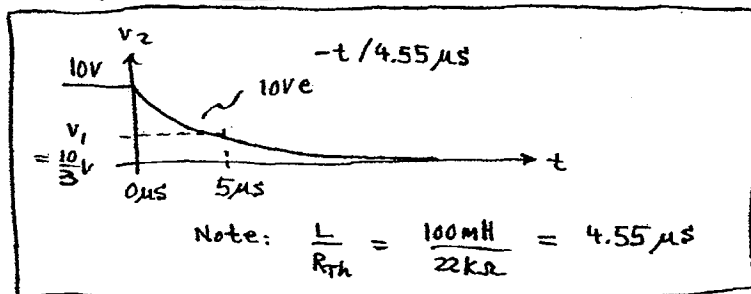 v2
10V
-t/4.55μs
10Ve
v1
= 10/3 V
t
0μs
5μs
Note: L/RTh = 100mH/22kΩ = 4.55μs